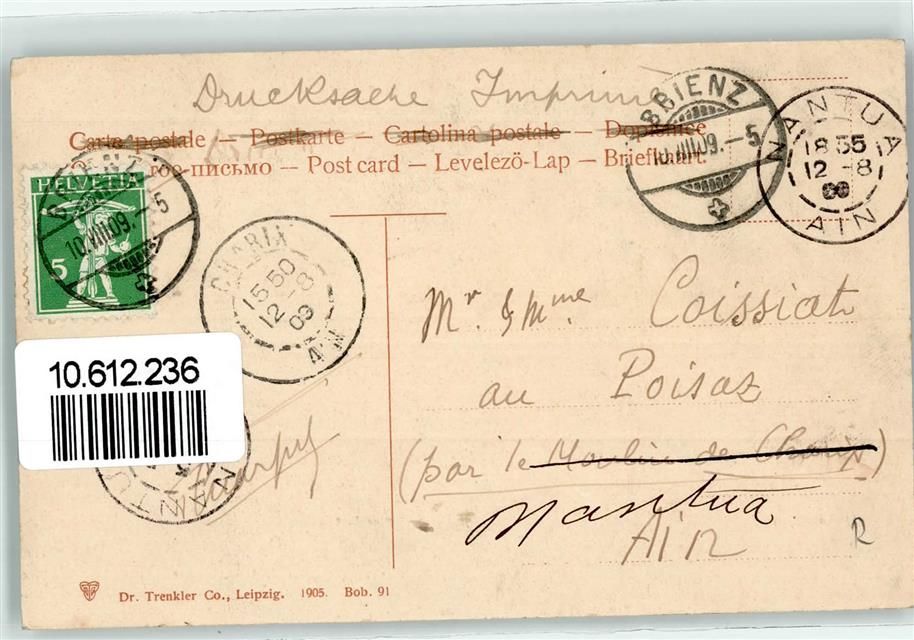 Drucksache Imprimé
Carte postale – Postkarte – Cartolina postale – Dopisnice
письмо –– Post card – Levelező-Lap – Briefkaart.
HELVETIA
5
10.VIII.09. – 5
BRIENZ
10.VIII.09. – 5
NANTUA
18 35
12 – 8
09
AIN
CHARIX
15 50
12 – 8
09
AIN
Mr. & Mme Coissiat
au Poisaz
(par le Moulin de Charix)
Nantua
Ain
R
10.612.236
Dr. Trenkler Co., Leipzig. 1905. Bob. 91